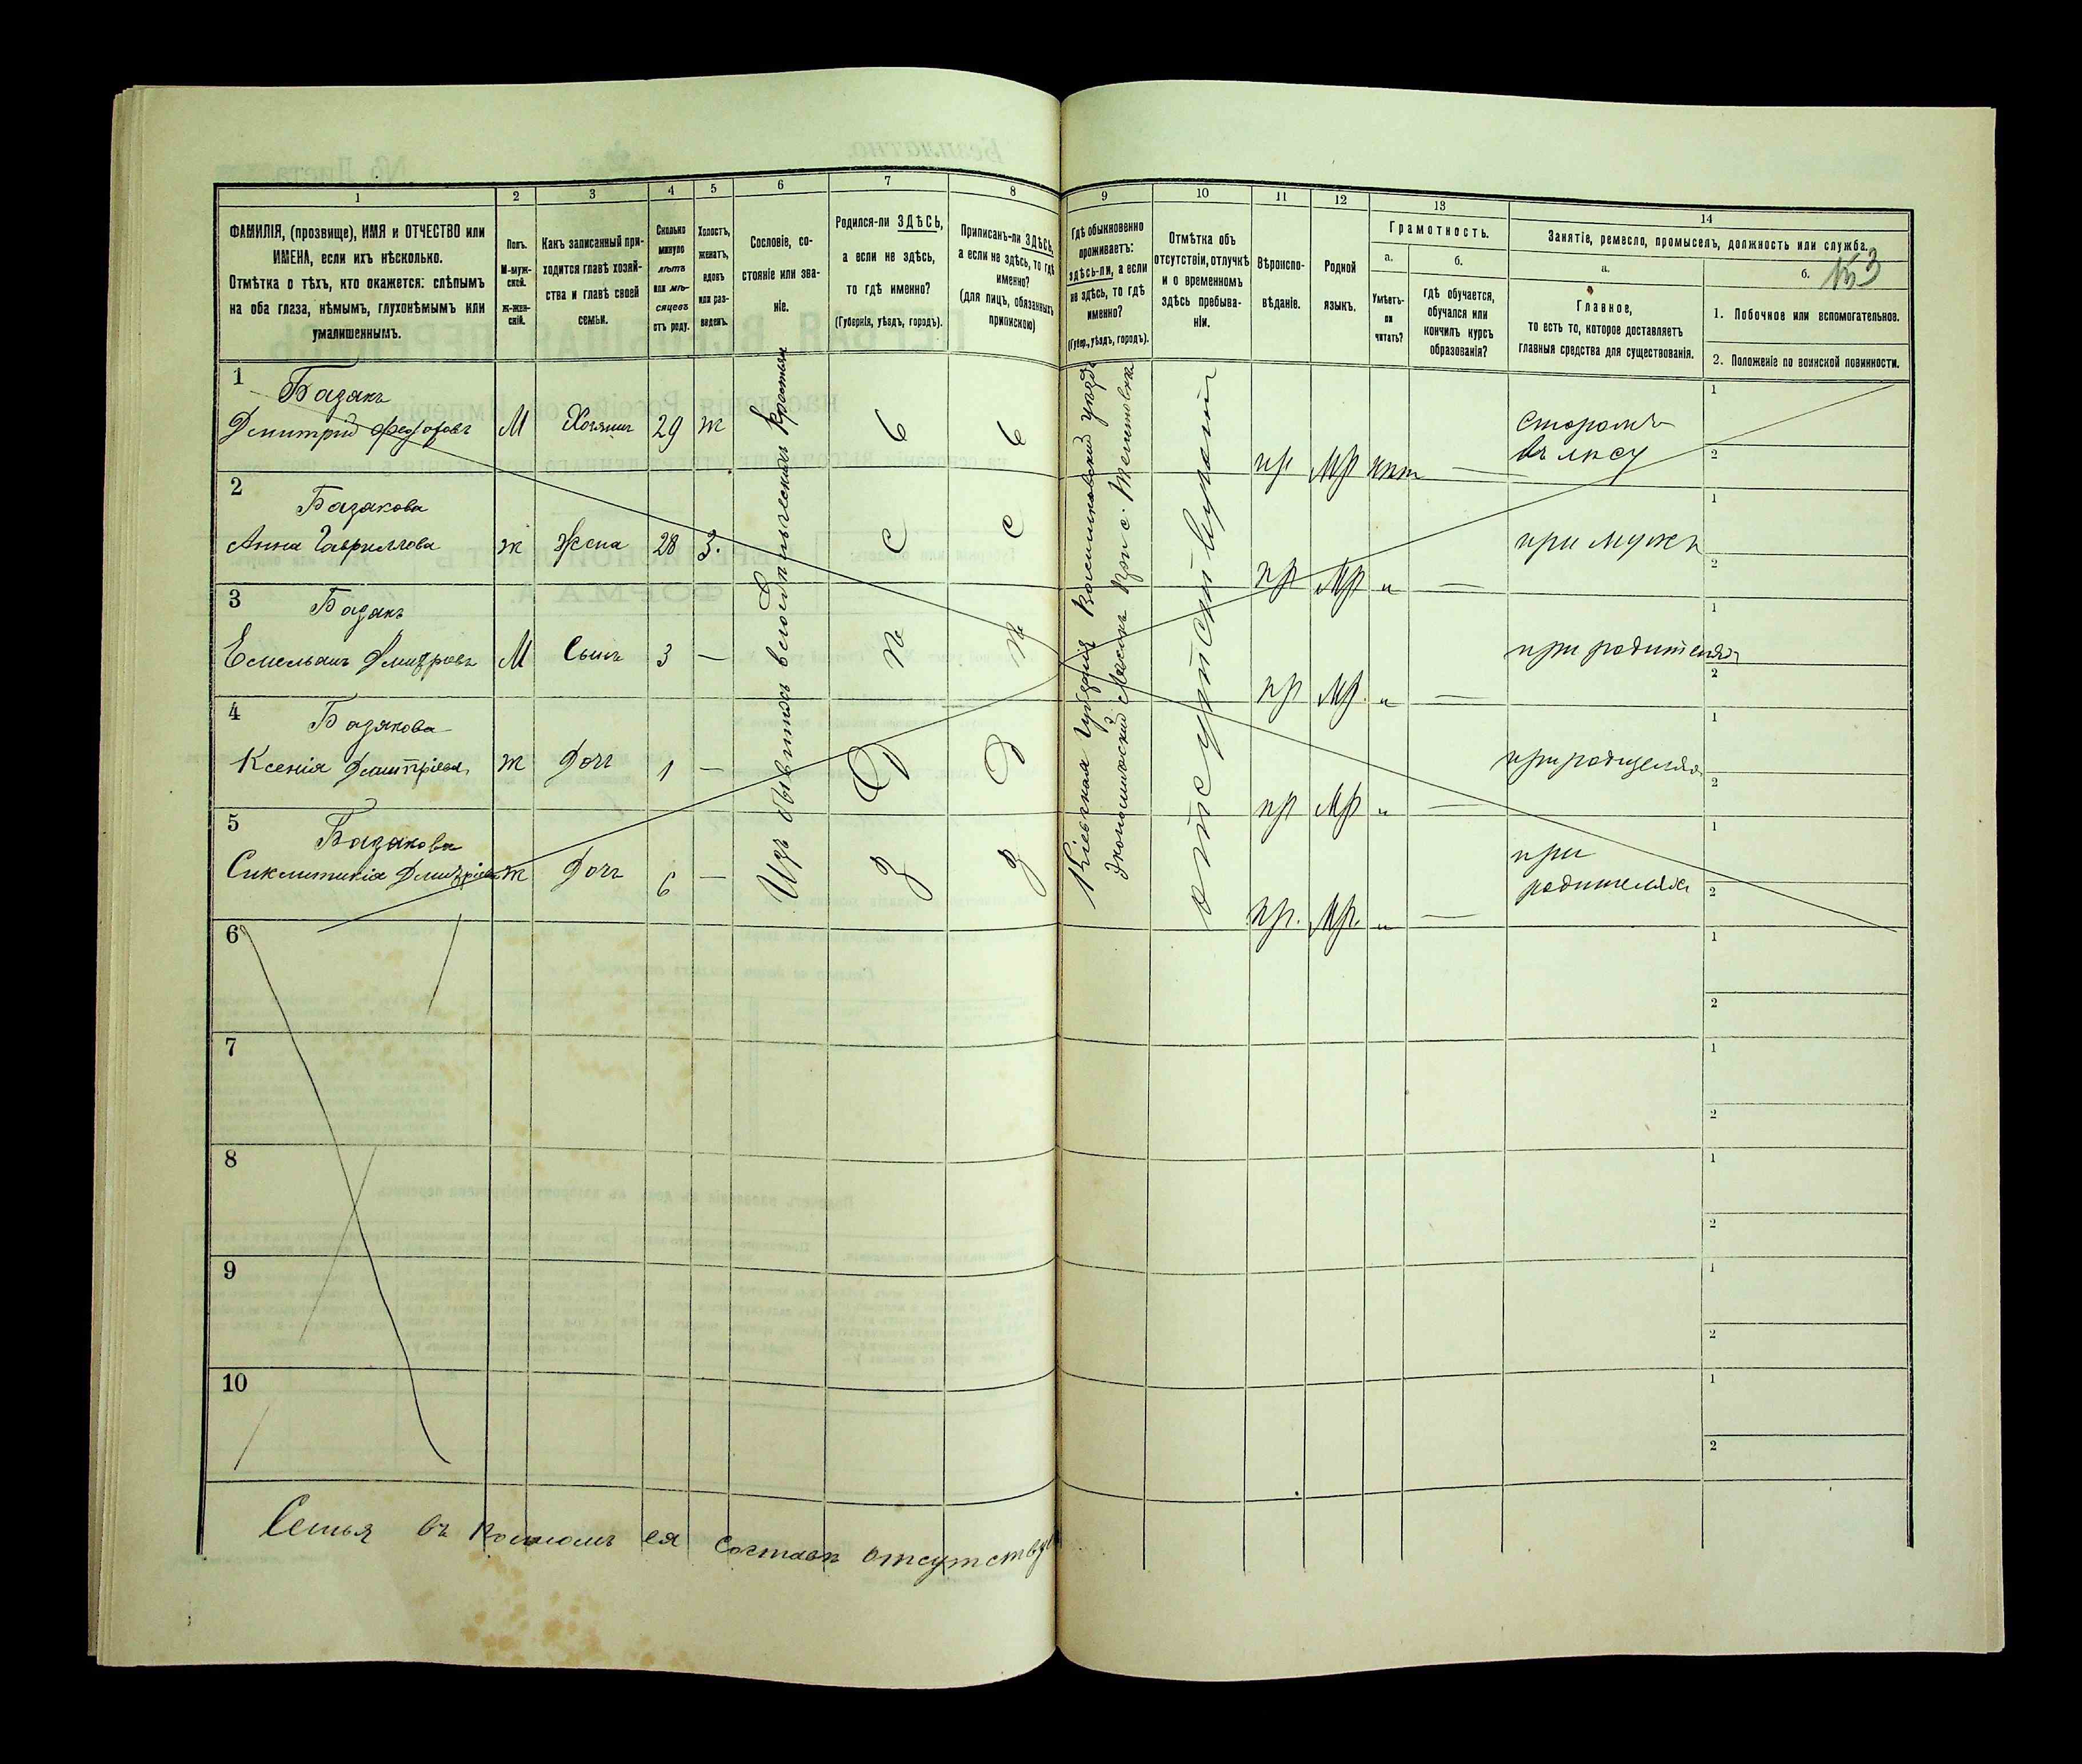 1 2 3 4 5 6 7 8 9 10 11 12 13 14
ФАМИЛІЯ, (прозвище), ИМЯ и ОТЧЕСТВО или
ИМЕНА, если ихъ нѣсколько.
Отмѣтка о тѣхъ, кто окажется: слѣпымъ
на оба глаза, нѣмымъ, глухонѣмымъ или
умалишеннымъ.
Полъ.
М-муж-
ской.
ж-жен-
скій.
Какъ записанный при-
ходится главѣ хозяй-
ства и главѣ своей
семьи.
Сколько
минуло
лѣтъ
или мѣ-
сяцевъ
отъ роду.
Холостъ,
женатъ,
вдовъ
или раз-
веденъ.
Сословіе, со-
стояніе или зва-
ніе.
Родился-ли ЗДѢСЬ,
а если не здѣсь,
то гдѣ именно?
(Губернія, уѣздъ, городъ).
Приписанъ-ли ЗДѢСЬ,
а если не здѣсь, то гдѣ
именно?
(для лицъ, обязанныхъ
припискою)
Гдѣ обыкновенно
проживаетъ:
здѣсь-ли, а если
не здѣсь, то гдѣ
именно?
(Губер., уѣздъ, городъ).
Отмѣтка объ
отсутствіи, отлучкѣ
и о временномъ
здѣсь пребыва-
ніи.
Вѣроиспо-
вѣданіе.
Родной
языкъ.
Грамотность.
а.
Умѣетъ-
ли
читать?
б.
гдѣ обучается,
обучался или
кончилъ курсъ
образованія?
Занятіе, ремесло, промыселъ, должность или служба.
а.
Главное,
то есть то, которое доставляетъ
главныя средства для существованія.
б.
153
1. Побочное или вспомогательное.
2. Положеніе по воинской повинности.
1 Базакъ
Дмитрій М Хозяинъ 29 ж
пр МР нѣт —
Сторожъ
въ лѣсу
1
2
2 Базакова
Анна Гаврилова ж жена 28 З.
пр МР „ —
при мужѣ
1
2
3 Базакъ
Емельянъ М Сынъ 3 —
пр МР. „ —
при родителяхъ
1
2
4 Базякова
Ксенія ж Дочь 1 —
пр МР „ —
при родителях
1
2
5 Базакова
ж Дочь 6 —
пр. МР. „ —
при
родителях
1
2
Изъ бывшихъ всего крестьян
Здѣсь
Здѣсь
Кіевская Губернія уѣзд
при с.
отсутствующій
6
1
2
7
1
2
8
1
2
9
1
2
10
1
2
Семья въ полномъ ея составѣ